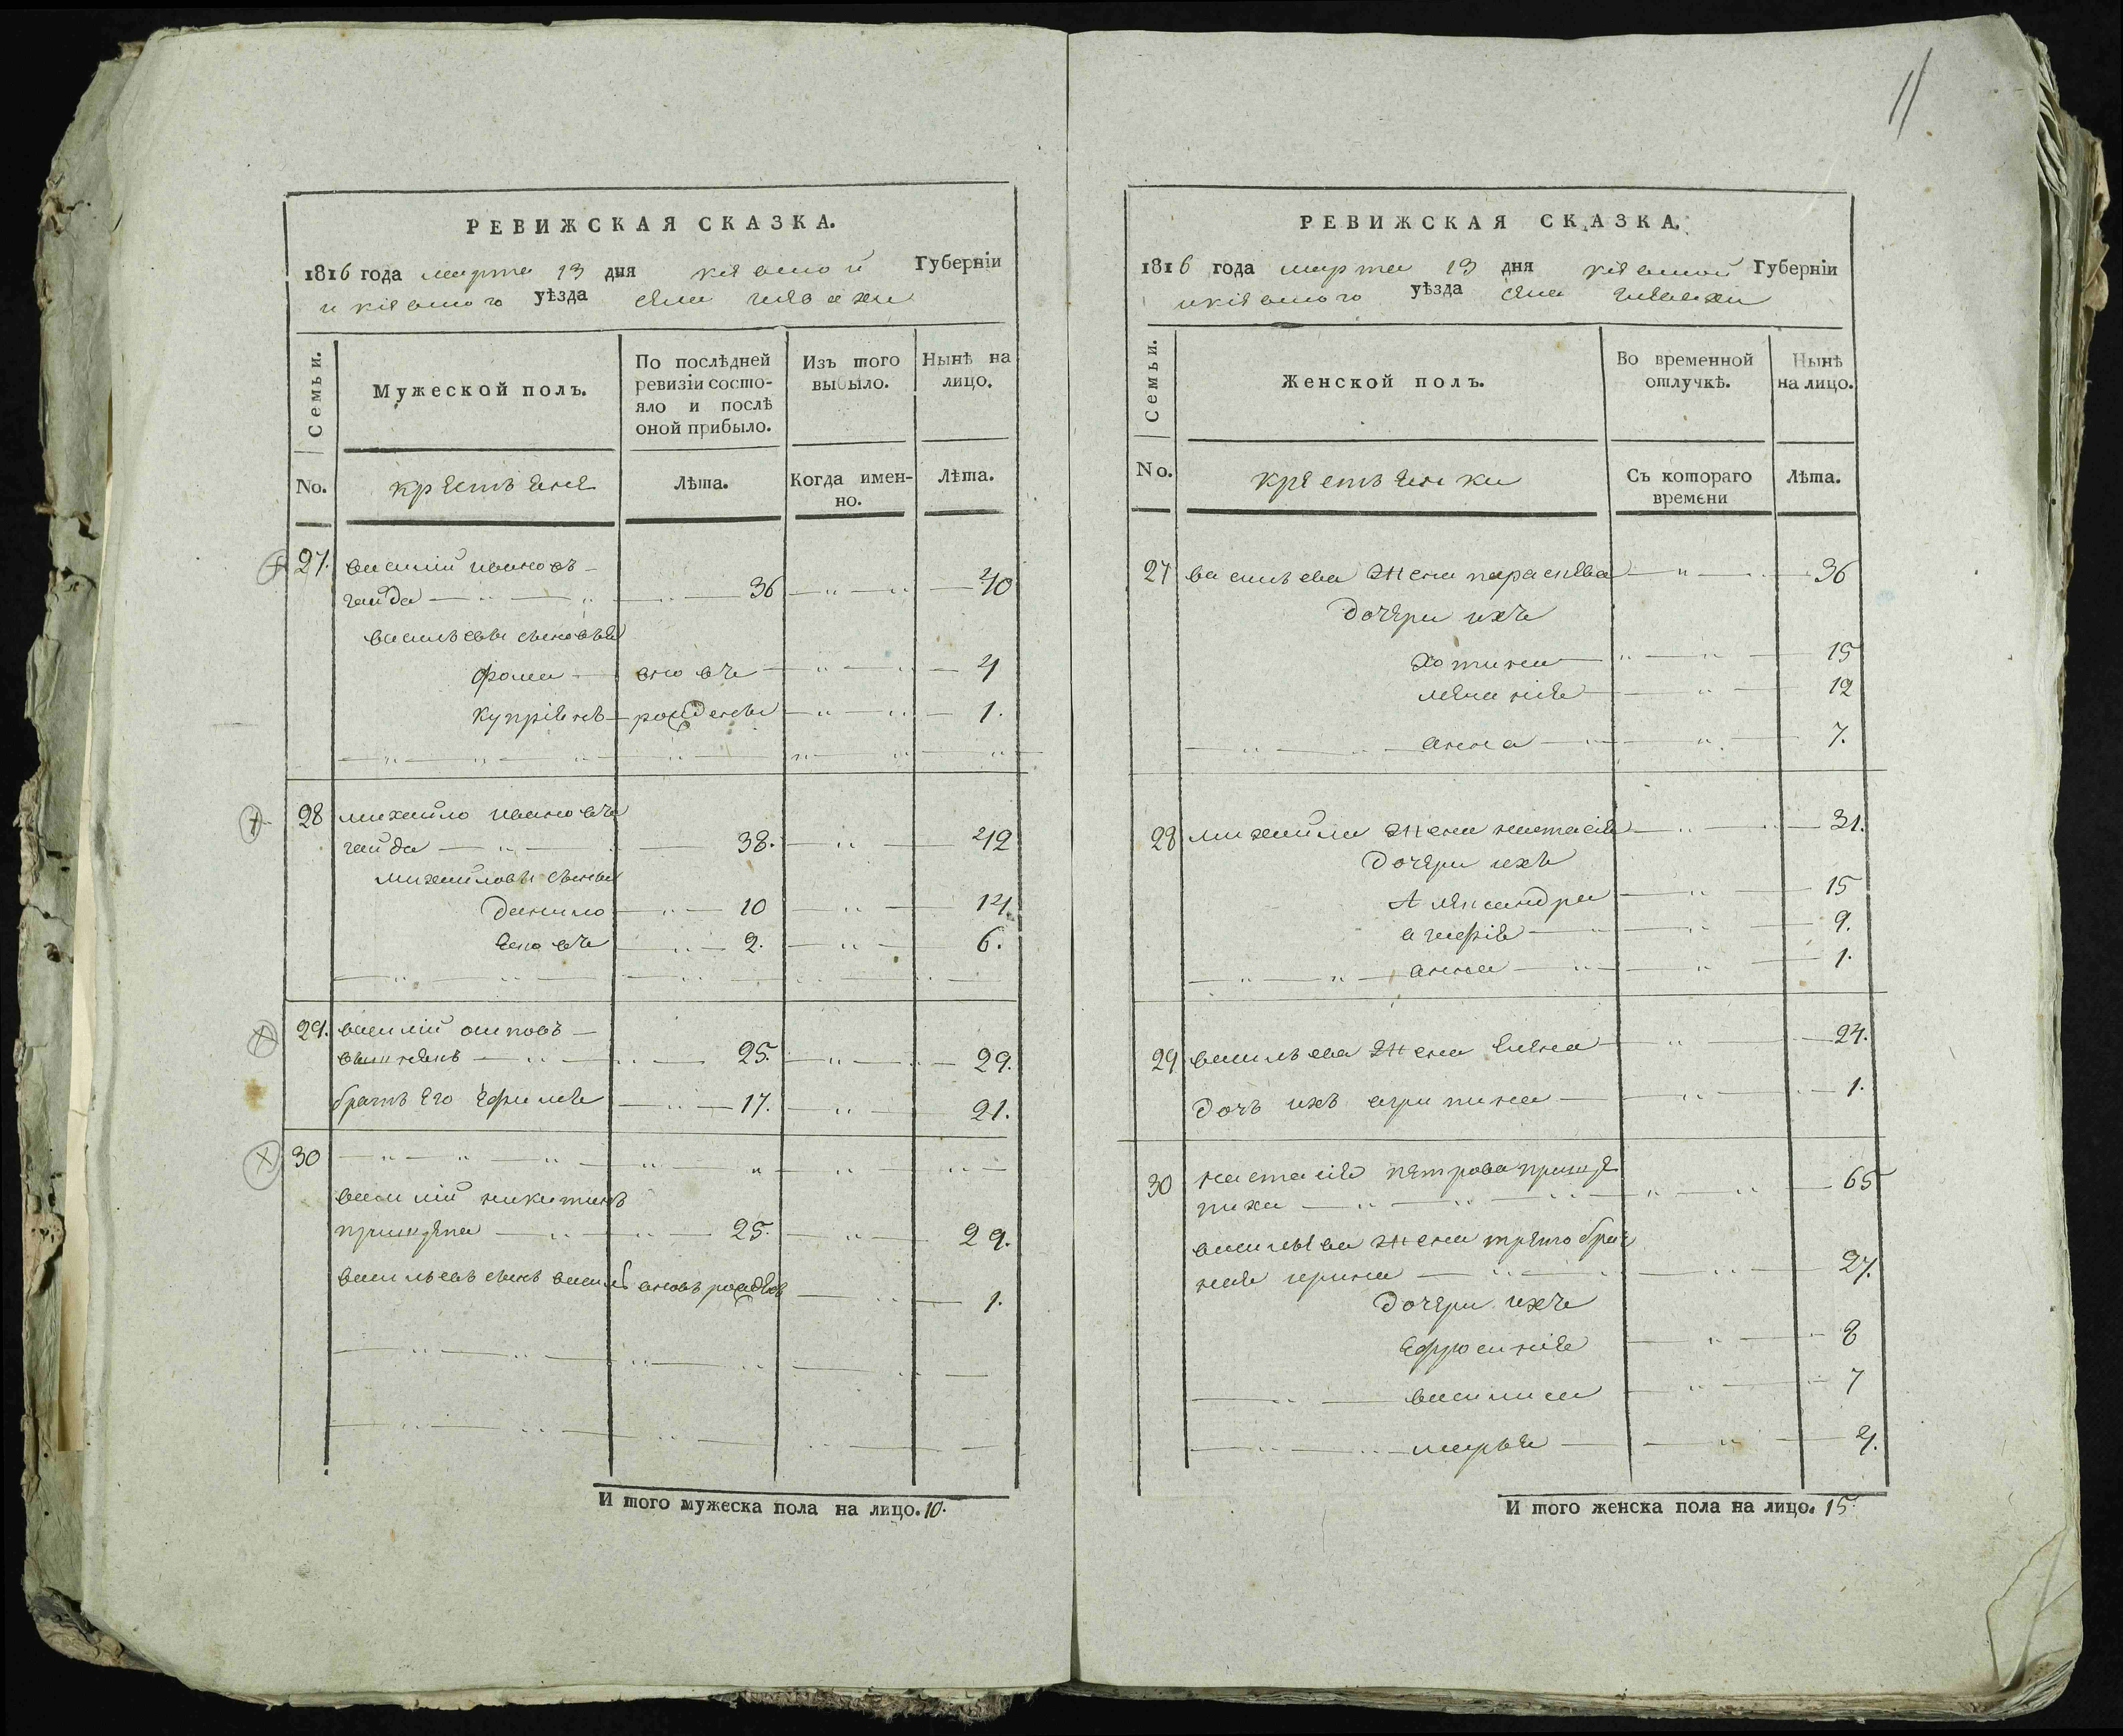 11
РЕВИЖСКАЯ СКАЗКА.
1816 года марта 13 дня кіевской Губерніи
и кіевского уѣзда села гвахи
Семьи.
Мужеской полъ.
По послѣдней ревизіи состояло и послѣ оной прибыло.
Изъ того выбыло.
Нынѣ на лицо.
No.
крестьяне
Лѣта.
Когда именно.
Лѣта.
27. василій ивановъ
гайда 36 40
васильевы сыновья
фома вновь 4
купріянъ рожденны 1.
28 михайло ивановъ
гайда 38. 42
михайловы сыны
данило 10 14.
яковъ 2. 6.
29. василій осиповъ
25. 29.
братъ его ефимъ 17. 21.
30
василій никитинъ
прищепа 25. 29.
васильевъ сынъ василь вновь рожденъ 1.
И того мужеска пола на лицо. 10.
РЕВИЖСКАЯ СКАЗКА.
1816 года марта 13 дня кіевской Губерніи
и кіевского уѣзда села
Семьи.
Женской полъ.
Во временной отлучкѣ.
Нынѣ на лицо.
No.
крестьянки
Съ котораго времени
Лѣта.
27 васильева жена параскева 36
дочери ихъ
хотина 15
меланія 12
анна 7.
28 михайла жена настасія 31.
дочери ихъ
Александра 15
агафія 9.
анна 1.
29 васильева жена елена 24.
дочь ихъ агрипина 1.
30 настасія петрова прище
пиха 65
васильева жена третобрач
ная ирина 27.
дочери ихъ
ефросинія 8
василиса 7
марья 4.
И того женска пола на лицо. 15.